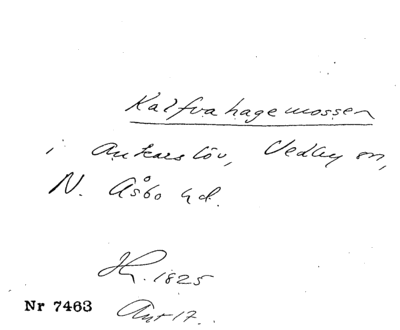 Kalfvahagemossen
i Ankarslöv, Vedby sn,
N. Åsbo hd.
1825
Nr 7463
Art 17.